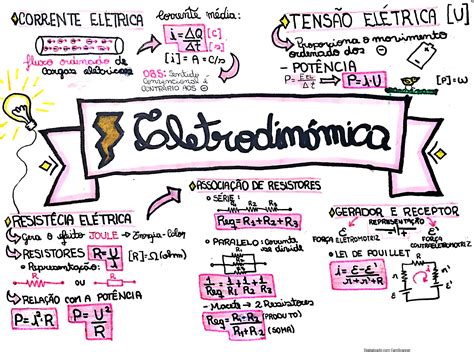 CORRENTE ELÉTRICA
fluxo ordenado de
cargas elétricas
Corrente média:
i = ΔQ [C]
Δt [s]
[i] = A = C/s
OBS: Sentido
Convencional é
CONTRÁRIO AOS ⊖
TENSÃO ELÉTRICA [U]
Proporciona o movimento
ordenado dos ⊖
- POTÊNCIA
P = Eel
Δt
P = i·U
[P] = W
Eletrodinâmica
RESISTÊCIA ELÉTRICA
Gera o efeito JOULE → Energia-Calor
RESISTORES R = U
i
[R] - Ω (ohm)
• Representação:
R
ou
R
RELAÇÃO COM A POTÊNCIA
P = i²·R
P = U²
R
ASSOCIAÇÃO DE RESISTORES
• SÉRIE:
R1 R2 R3
Req = R1 + R2 + R3
• PARALELO: Corrente
se divide
1 = 1 + 1 + 1
Req R1 R2 R3
- Macete → 2 Resistores
Req = R1 · R2 (PRODUTO)
R1 + R2 (SOMA)
GERADOR E RECEPTOR
REPRESENTAÇÃO
FORÇA ELETROMOTRIZ
FORÇA
CONTRAELETROMOTRIZ
• LEI DE POUILLET
i = ε - ε'
r + r' + R
Digitalizado com CamScanner